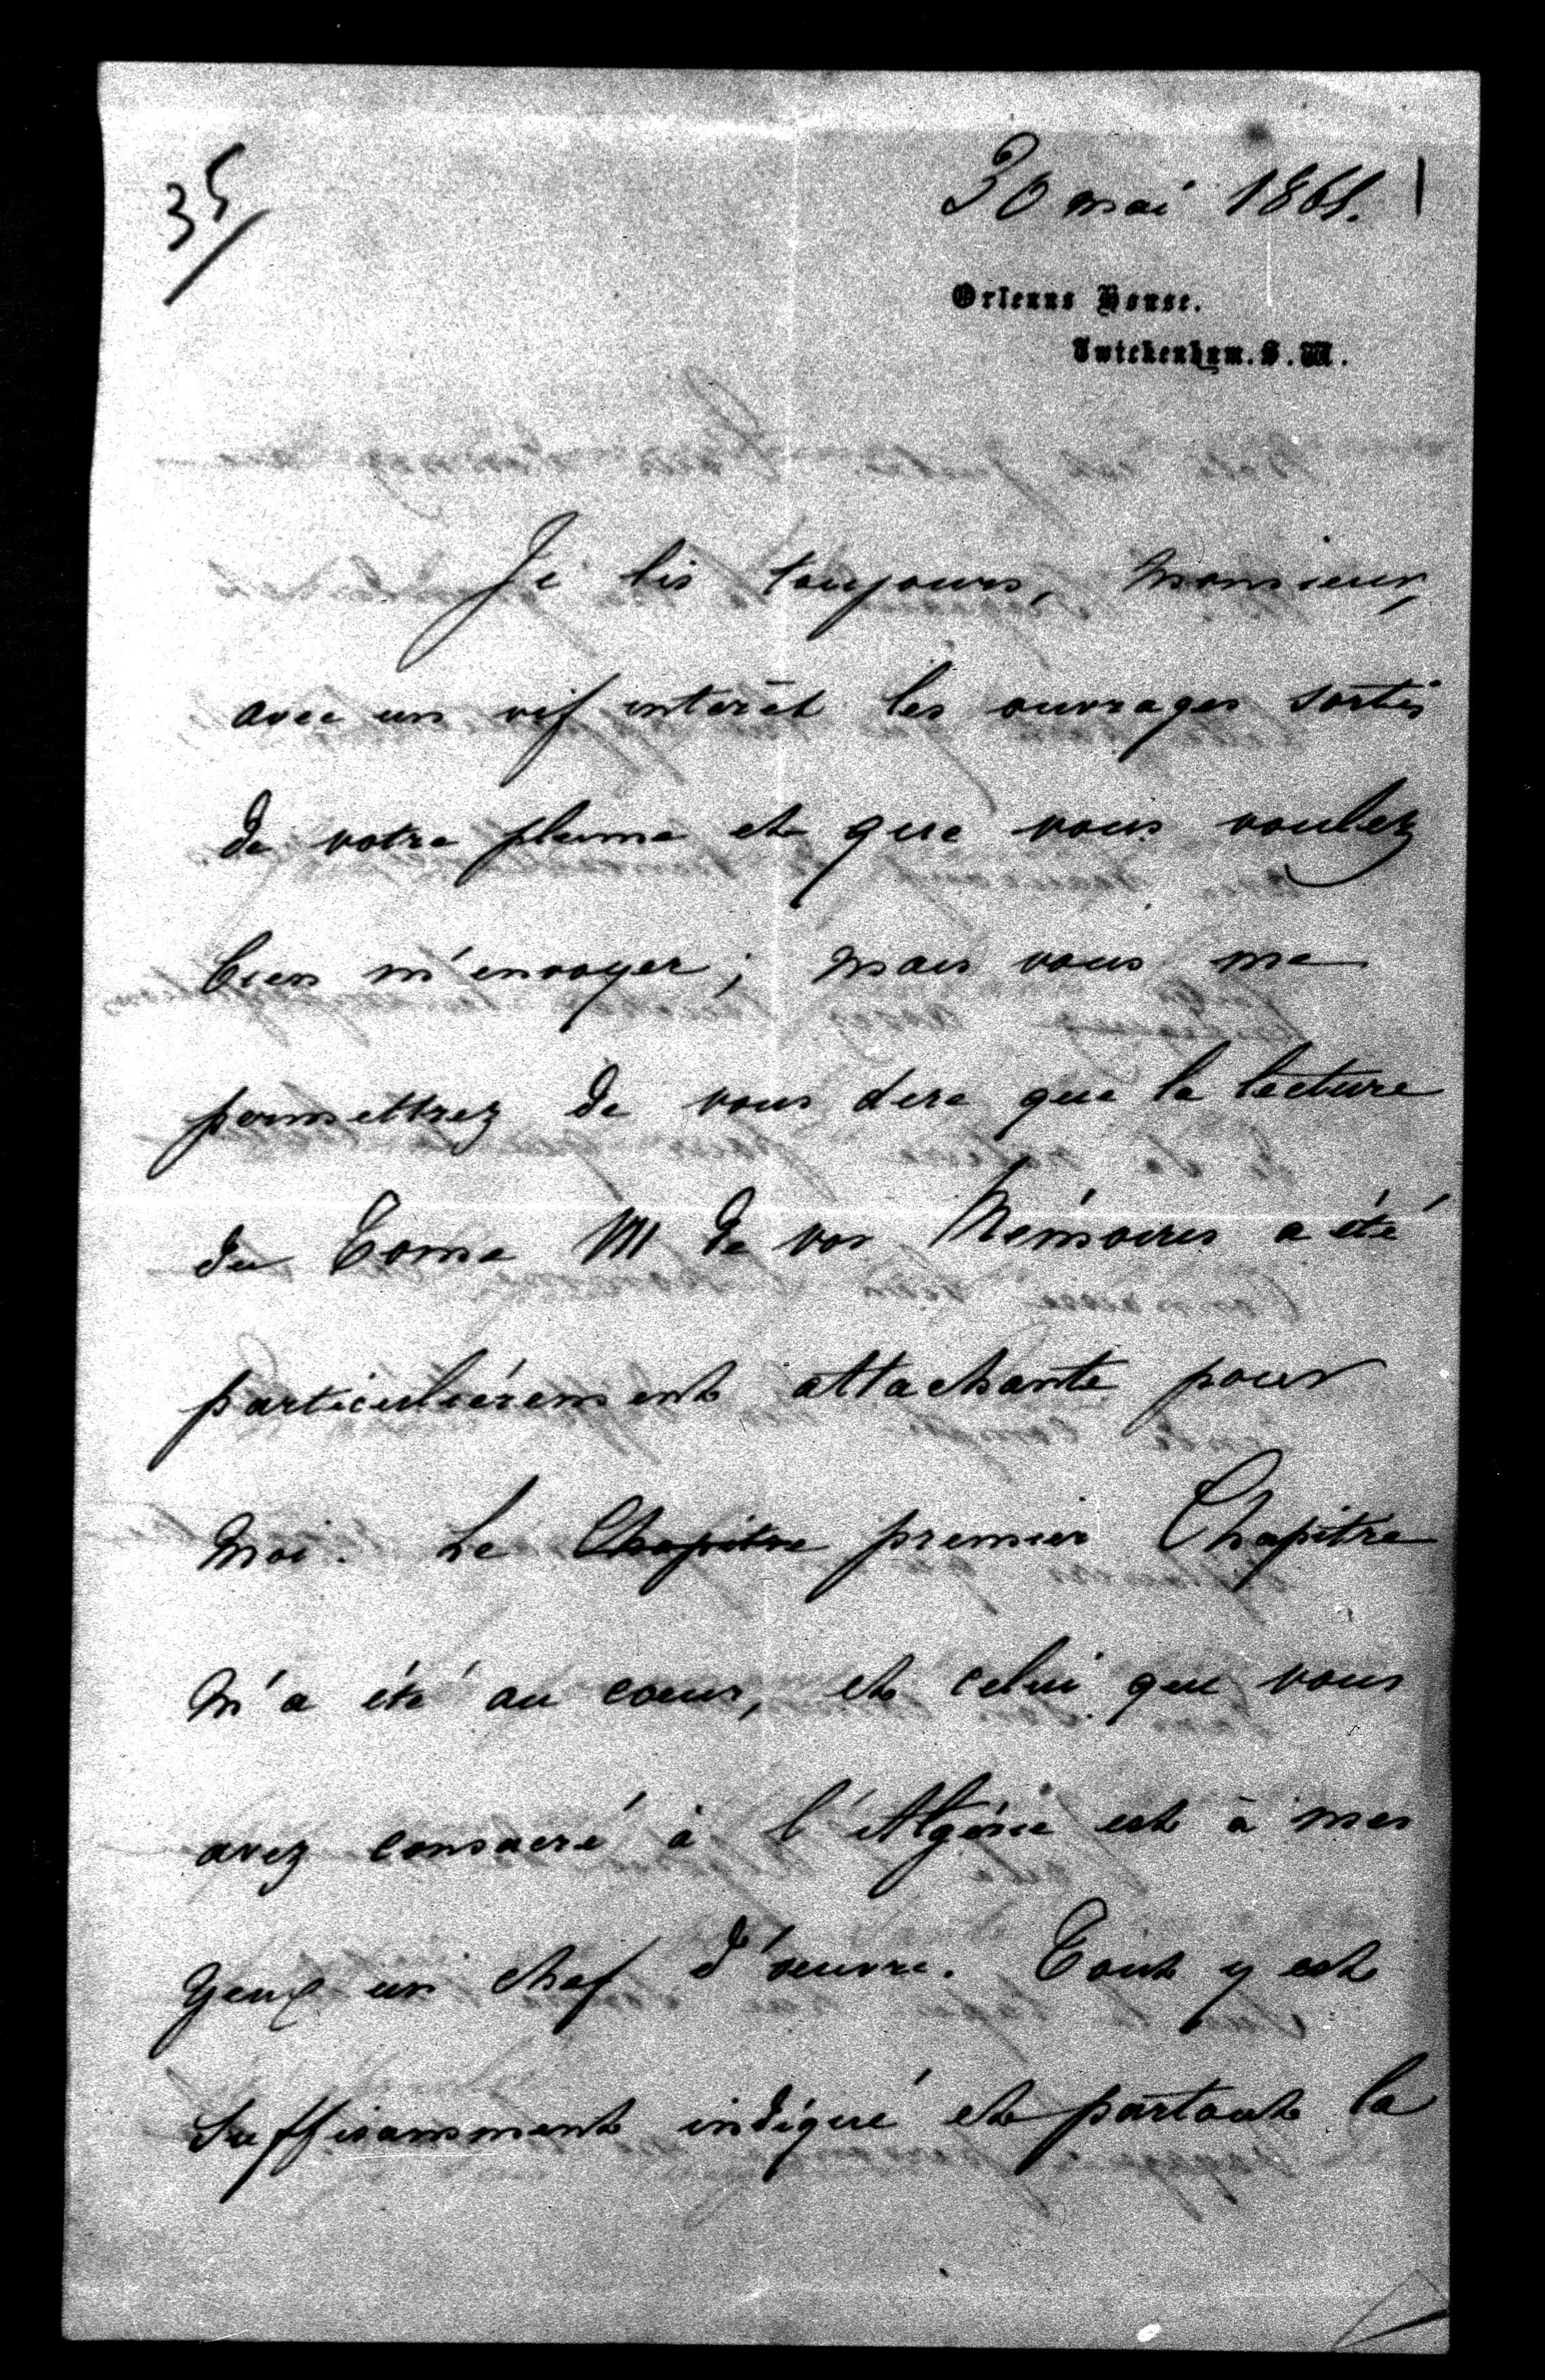 35
30 mai 1865. 1
Orleans House.
Twickenham. S. W.
Je lis toujours, Monsieur,
avec un vif intérêt les ouvrages sortis
de votre plume et que vous voulez
bien m'envoyer ; mais vous me
permettrez de vous dire que la lecture
du Tome VII de vos Mémoires a été
particulièrement attachante pour
moi. Le Chapitre premier Chapitre
m'a été au coeur, et celui que vous
avez consacré à l'Algérie est à mes
yeux un chef d'oeuvre. Tout y est
suffisamment indiqué et partout la